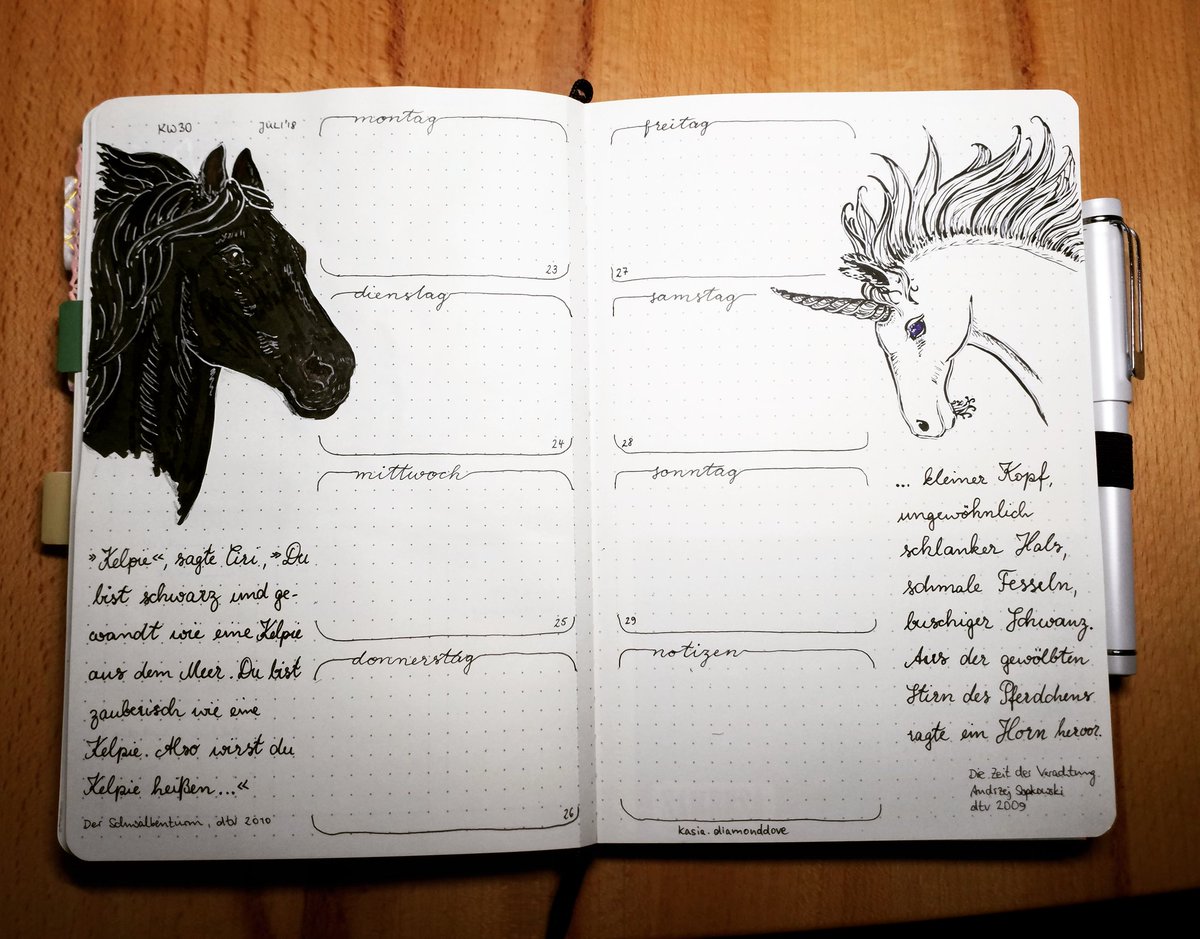 KW30
JULI'18
montag
23
dienstag
24
mittwoch
25
donnerstag
26
»Kelpie«, sagte Ciri, »Du
bist schwarz und ge-
wandt wie eine Kelpie
aus dem Meer. Du bist
zauberisch wie eine
Kelpie. Also wirst du
Kelpie heißen...«
Der Schwalbenturm, dtv 2010
freitag
27
samstag
28
sonntag
29
notizen
... kleiner Kopf,
ungewöhnlich
schlanker Hals,
schmale Fesseln,
buschiger Schwanz.
Aus der gewölbten
Stirn des Pferdchens
ragte ein Horn hervor.
Die Zeit der Verachtung
Andrzej Sapkowski
dtv 2009
kasia.diamonddove